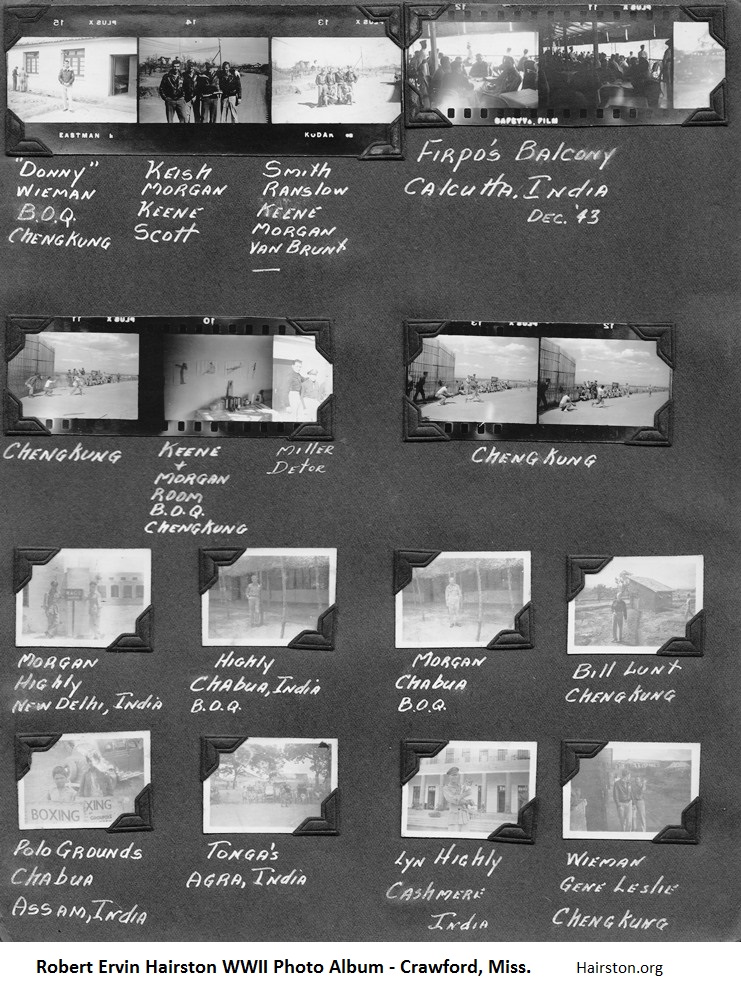 15 PLUS X 14 13 PLUS X
12 PLUS X 11
EASTMAN KODAK
SAFETY FILM
"Donny"
Wieman
B.O.Q.
Chengkung
Keish
Morgan
Keene
Scott
Smith
Ranslow
Keene
Morgan
Van Brunt
Firpo's Balcony
Calcutta, India
Dec. '43
11 PLUS X 10
13 PLUS X 12
Chengkung
Keene
+
Morgan
Room
B.O.Q.
Chengkung
Miller
Detor
Chengkung
Morgan
Highly
New Delhi, India
Highly
Chabua, India
B.O.Q.
Morgan
Chabua
B.O.Q.
Bill Lunt
Chengkung
BOXING
XING
Polo Grounds
Chabua
Assam, India
Tonga's
Agra, India
Lyn Highly
Cashmere
India
Wieman
Gene Leslie
Chengkung
Robert Ervin Hairston WWII Photo Album - Crawford, Miss. Hairston.org